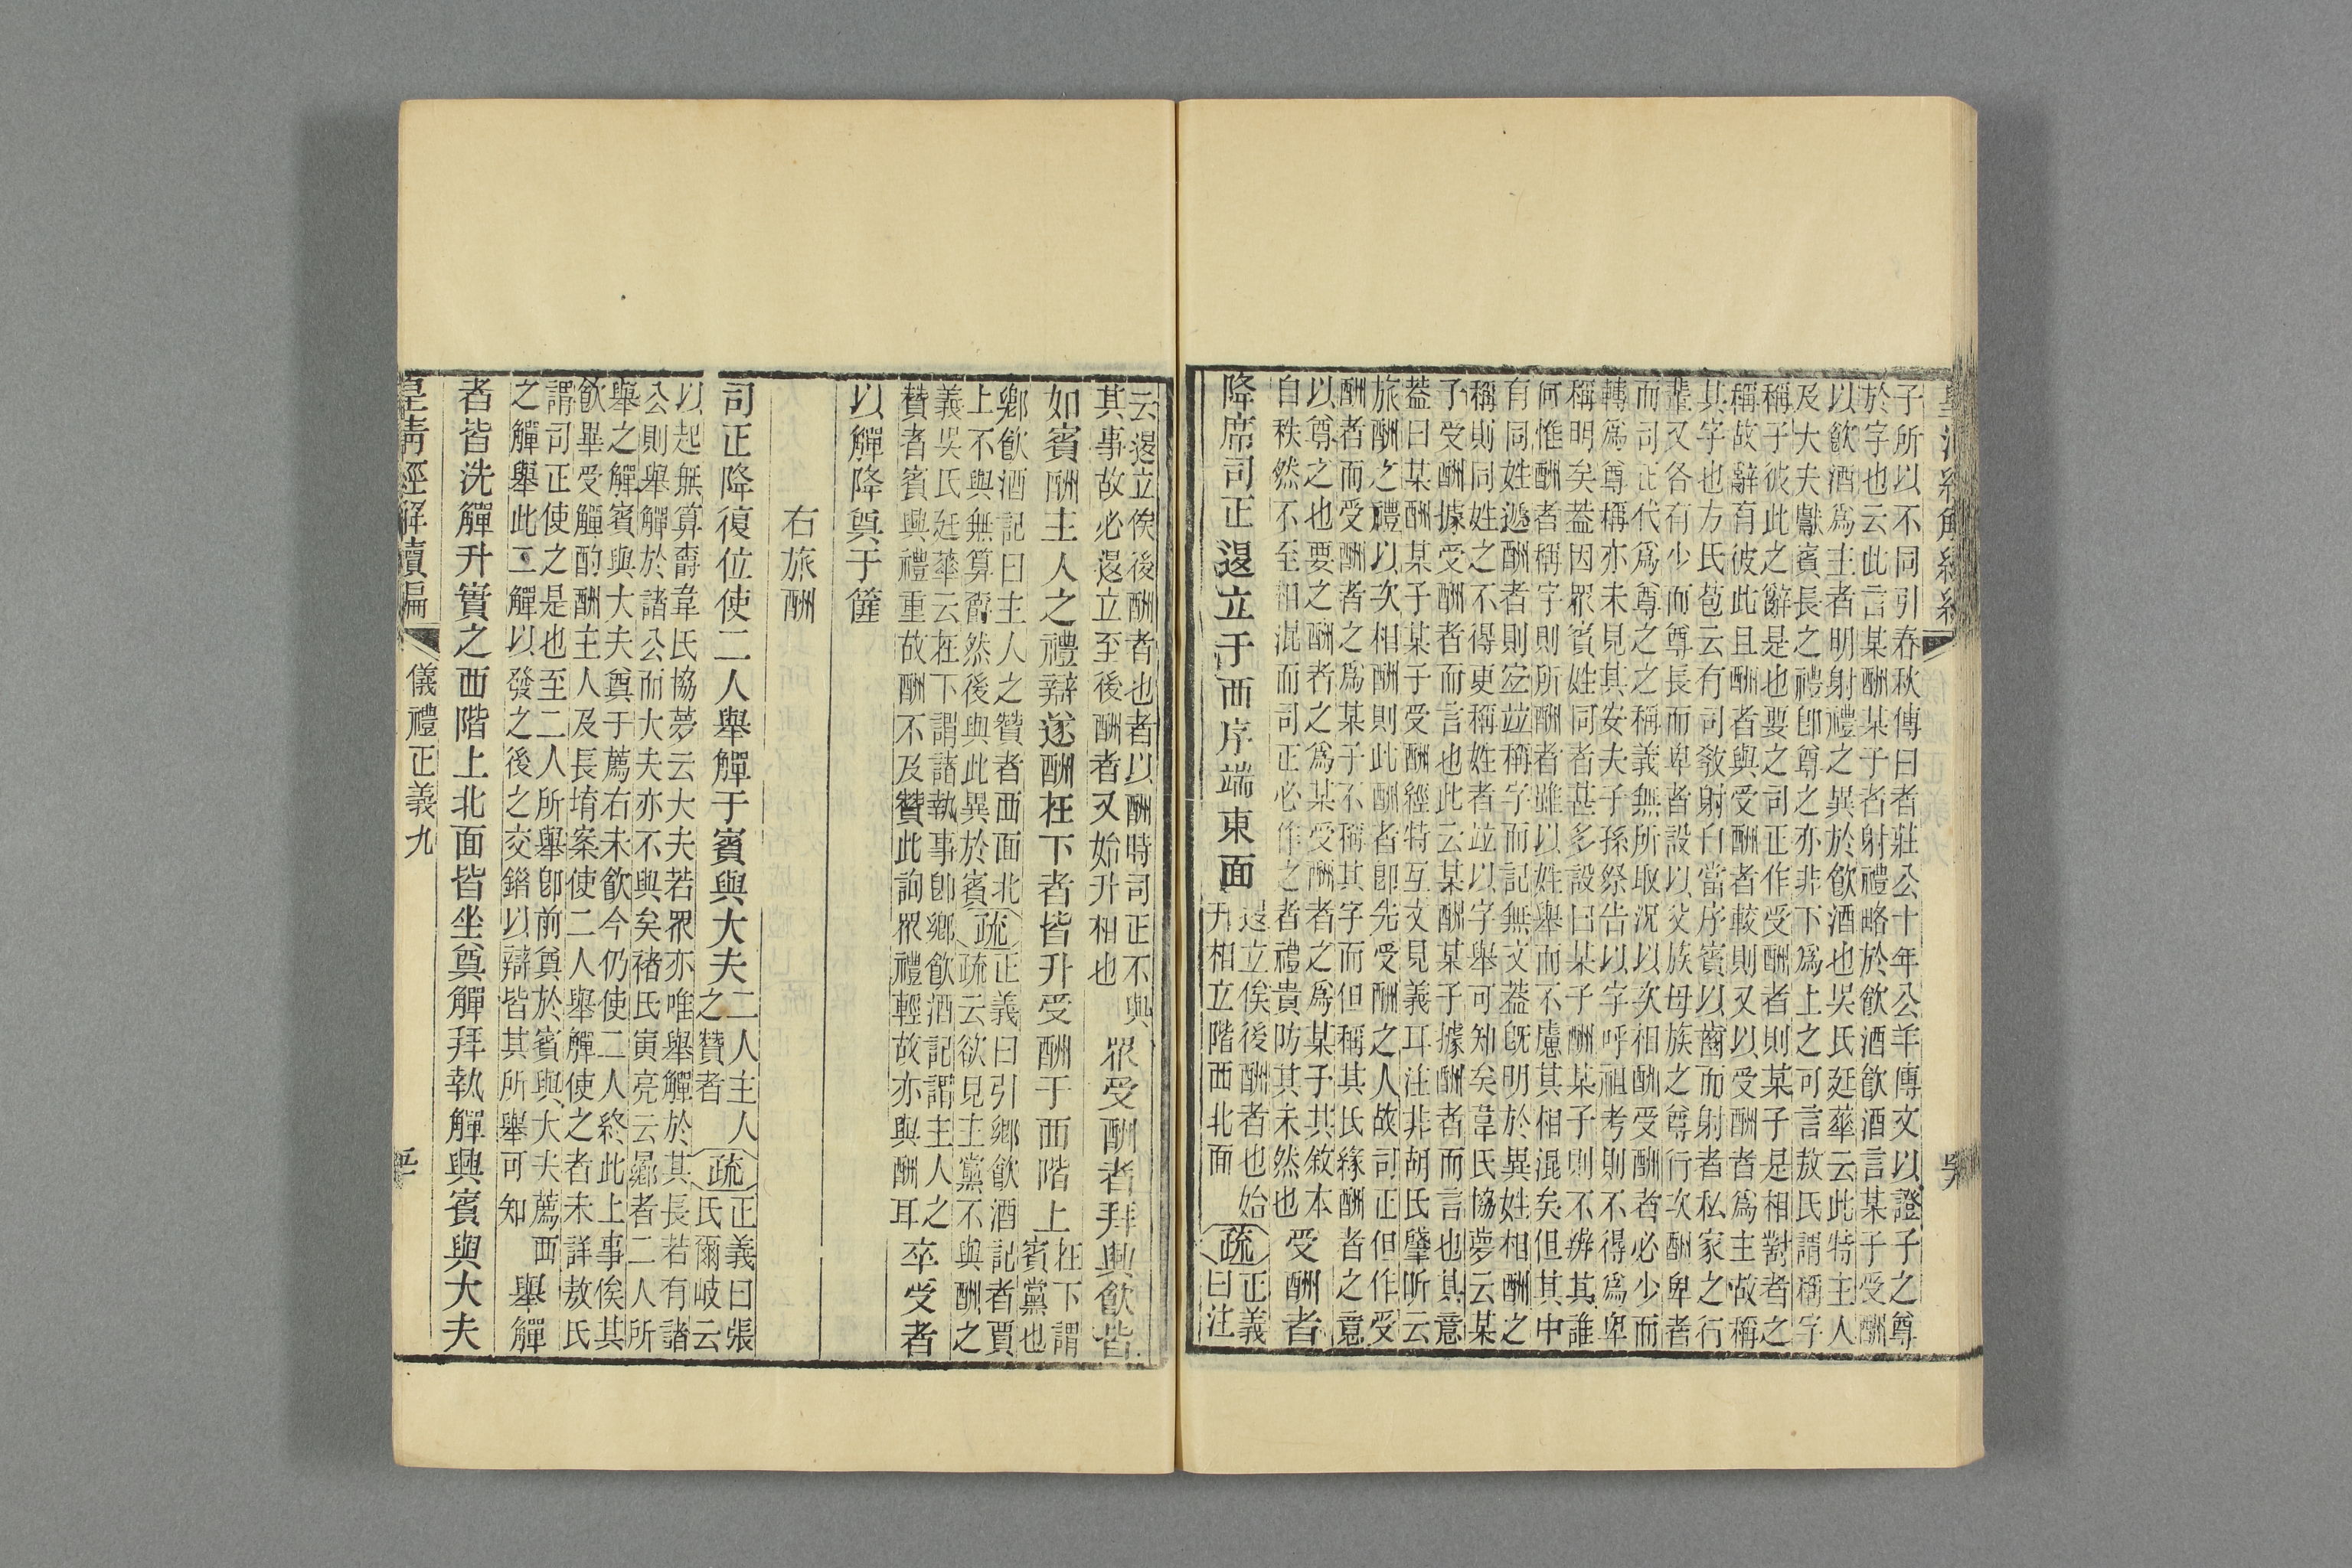 子所以不同引春秋傳曰者莊公十年公羊傳文以證子之尊
於字也云此言某酬某子者射禮略於飮酒飮酒言某子受酬
以飮酒爲主者明射禮之異於飮酒也吳氏廷華云此特主人
及大夫獻賓長之禮卽尊之亦非下爲上之可言敖氏謂稱字
稱子彼此之辭是也要之司正作受酬者則某子是相對者之
稱故辭有彼此且酬者與受酬者較則又以受酬者爲主故稱
其字也方氏苞云有司敎射自當序賓以齒而射者私家之行
輩又各有少而尊長而卑者設以父族母族之尊行次酬卑者
而司正代爲尊之之稱義無所取況以次相酬受酬者必少而
轉爲尊稱亦未見其安夫子孫祭告以字呼祖考則不得爲卑
稱明矣蓋因眾賓姓同者甚多設曰某子酬某子則不辨其誰
何惟酬者稱字則所酬者雖以姓舉而不慮其相混矣但其中
有同姓遞酬者則宜竝稱字而記無文蓋旣明於異姓相酬之
稱則同姓之不得更稱姓者竝以字舉可知矣韋氏協夢云某
子受酬據受酬者而言也此云某酬某子據酬者而言也其意
蓋曰某酬某子某子受酬經特互文見義耳注非胡氏肇昕云
旅酬之禮以次相酬則此酬者卽先受酬之人故司正但作受
酬者而受酬者之爲某子不稱其字而但稱其氏緣酬者之意
以尊之也要之酬者之爲某受酬者之爲某子其敘本
自秩然不至相混而司正必作之者禮貴防其未然也
受酬者
降席司正退立于西序端東面
退立俟後酬者也始
升相立階西北面
疏
正義
曰注
云退立俟後酬者也者以酬時司正不與
其事故必退立至後酬者又始升相也
眾受酬者拜興飮皆
如賓酬主人之禮辯遂酬在下者皆升受酬于西階上
在下謂
賓黨也
鄕飮酒記曰主人之贊者西面北
上不與無算爵然後與此異於賓
疏
正義曰引鄕飮酒記者賈
疏云欲見主黨不與酬之
義吳氏廷華云在下謂諸執事卽鄕飮酒記謂主人之
贊者賓興禮重故酬不及贊此詢眾禮輕故亦與酬耳
卒受者
以觶降奠于篚
右旅酬
司正降復位使二人舉觶于賓與大夫
二人主人
之贊者
疏
正義曰張
氏爾岐云
以起無算爵韋氏協夢云大夫若眾亦唯舉觶於其長若有諸
公則舉觶於諸公而大夫亦不與矣褚氏寅亮云鄕者二人所
舉之觶賓與大夫奠于薦右未飮今仍使二人終此上事俟其
飮畢受觶酌酬主人及長堉案使二人舉觶使之者未詳敖氏
謂司正使之是也至二人所舉卽前奠於賓與大夫薦西
之觶舉此二觶以發之後之交錯以辯皆其所舉可知
舉觶
者皆洗觶升實之西階上北面皆坐奠觶拜執觶興賓與大夫
皇淸經解續編
儀禮正義九